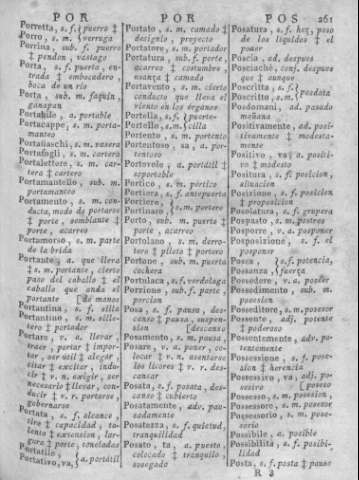 POR
POR
POS 261
Porretta, s. f. { puerro ‡
Porro, s. m. { verruga
Porrina, sub. f. puerro
‡ pendon, vastago
Porta, s. f. puerta, en-
trada ‡ embocadero,
boca de un rio
Porta, sub. m. faquin,
ganapan
Portabile, a. portable
Portacappe, s. m. porta-
manteo
Portafiaschi, s. m. vasera
Portafogli, s. m. cartera
Portalettere, s. m. car-
tera ‡ cartero
Portamantello, sub. m.
portamanteo
Portamento, s. m. con-
ducta, modo de portarse
‡ porte, semblante ‡
porte, acarreo
Portamorso, s. m. parte
de la brida
Portante, a. que lleva
‡ s. m. portante, cierto
paso del caballo ‡ el
caballo que anda el
portante [de manos
Portantina, s. f. silla
Portantino, s. m. sille-
tero ‡ portador
Portare, v. a. llevar,
traer, portar ‡ impor-
tar, ser útil ‡ alegar,
citar ‡ excitar, indu-
cir ‡ v. n. exigir, ser
necesario ‡ llevar, con-
ducir ‡ v. r. portarse,
gobernarse
Portata, s. f. alcance,
tiro ‡ capacidad, ta-
lento ‡ extension, lar-
gura ‡ porte, toneladas
Portatile,
Portativo, va, } a. portátil
Portato, s. m. camada ‡
designio, proyecto
Portatore, s. m. portador
Portatura, sub. f. porte,
acarreo ‡ costumbre,
usanza ‡ camada
Portavento, s. m. cierto
conducto que lleva el
viento en los órganos
Portella, s. f. { puerte-
Portello, s. m. { cilla
Portento, s. m. portento
Portentoso, sa, a. por-
tentoso
Portevole, a. portátil ‡
soportable
Portico, s. m. pórtico
Portiera, s. f. antepuerta
Portiere,
Portinaro, } s. m. portero
Porto, s. m. puerto ‡
porte, acarreo
Portolano, s. m. derro-
tero ‡ piloto ‡ portero
Portone, sub. m. puerta
cochera
Portulaca, s. f. verdolaga
Porzione, sub. f. parte,
porcion
Posa, s. f. pausa, des-
canso ‡ pausa, suspen-
sion [descanso
Posamento, s. m. pausa,
Posare, v. a. poner, co-
locar ‡ v. n. asentarse
los licores ‡ v. r. des-
cansar
Posata, s. f. posada, des-
canso ‡ cubierto
Posatamente, adv. pau-
sadamente
Posatezza, s. f. quietud,
tranquilidad
Posato, ta, a. puesto,
colocado ‡ tranquilo,
sosegado
Posatura, s. f. hez, poso
de los líquidos ‡ el
poner
Poscia, ad. despues
Posciachè, conj. despues
que ‡ aunque
Poscritta, s. f. { posdata
Poscritto, s. m.
Posdomani, ad. pasado
mañana
Positivamente, ad. posi-
tivamente ‡ modesta-
mente
Positivo, va, a. positi-
vo ‡ modesto
Positura, s. f. posicion,
situacion
Posizione, s. f. posicion
‡ proposicion
Posolatura, s. f. grupera
Pospasto, s. m. postres
Posporre, v. a. posponer
Posposizione, s. f. el
posponer
Possa, { s. f. potencia,
Possanza, { fuerza
Possedere, v. a. poseer
Possedimento, sub. m.
posesion
Posseditore, s. m. posesor
Possente, adj. potente
‡ poderoso
Possentemente, adv. po-
tentemente
Possessione, s. f. pose-
sion ‡ herencia
Possessivo, va, adj. po-
sesivo [poseso
Possesso, s. m. posesion,
Possessore, s. m. posesor
Possessorio, s. m. pose-
sorio
Possibile, a. posible
Possibilità, s. f. posibi-
lidad
Posta, s. f. posta ‡ pausa
R 3